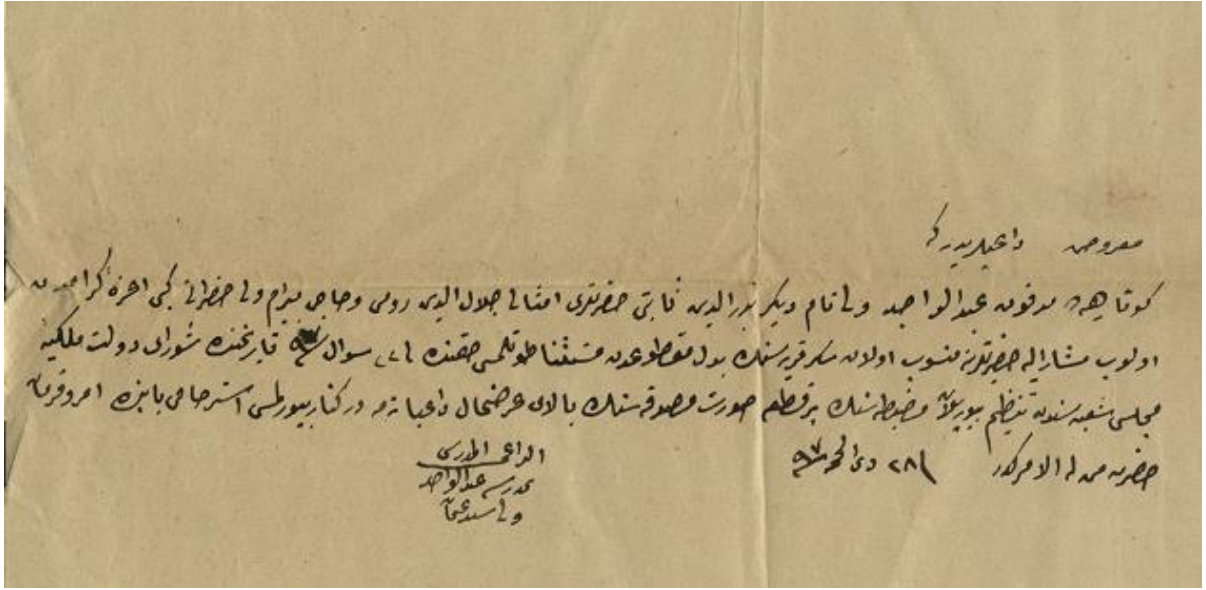 معروض داعیلریدرکه
کوتاهیه‌ده مدفون عبدالواحد ولی نام دیکر بدرالدین ثابتی حضرتلری امثالی جلال الدین رومی وحاجی بیرام ولی حضراتی کبی اعزهٔ کرامدن
اولوب مشارالیه حضرتلرینه منسوب اولان قریه‌سنك بدل مقطوعدن مستثنا طوتلمسی حقنده فی شوال ۹۷ تاریخنده شورای دولت ملکیه
مجلسی شعبه‌سندن تنظیم بیوریلان مضبطه‌سنك بر قطعه صورت مصدقه‌سنك بالای عرضحال داعیانه‌مه درکنار بیورلمسی استرحامی بابنده امر وفرمان
حضرت من له الامرکدر ۲۸ ذی الحجه ۹۷
الداعی المدرس
مدرسه عبدالواحد
ولی سید عثمان